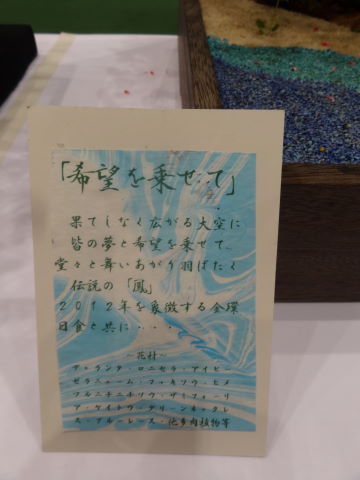 「希望を乗せて」
果てしなく広がる大空に
皆の夢と希望を乗せて、
堂々と舞いあがり羽ばたく
伝説の「鳳」
2012年を象徴する金環
日食と共に・・・
～花材～
デュランタ・ロニセラ・アイビー
ゼラニューム・フッキソウ・ヒメ
ツルニチニチソウ・ザミフォーリ
ア・ケイトウ・グリーンネックレ
ス・ブルーレース・他多肉植物等